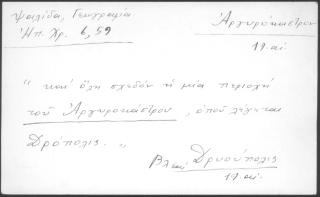 Ψαλίδα, Γεωγραφία
Ἠπ. Χρ. 6, 59
Ἀργυρόκαστρον
19. αἰ.
" καὶ ὅλη σχεδὸν ἡ μία περιοχὴ
τοῦ Ἀργυροκάστρου, ὁποῦ λέγεται
Δρόπολις. "
Βλ. καὶ Δρυούπολις
19. αἰ.